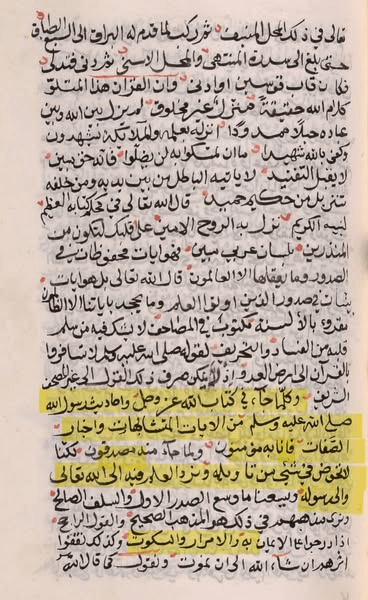 تعالى في ذلك المحل المنيف ثم ركب لما قدم له البراق الى السبع الطباق
حتى بلغ الى سدرة المنتهى والمحل الاسنى ثم دنى فتدلى
فكان قاب قوسين او ادنى وان القران هذا المتلو
كلام الله حقيقة منزل غير مخلوق امر بين الله وبين
عباده انزله بعلمه والملائكة يشهدون
وكفى بالله شهيدا ما ان تمسكوا به لن يضلوا فانه حق مبين
لا يقبل التفنيد لا ياتيه الباطل من بين يديه ومن خلفه
تنزيل من حكيم حميد قال الله تعالى في محكم كتابه العظيم
لنبيه الكريم نزل به الروح الامين على قلبك لتكون من
المنذرين بلسان عربي مبين فهو ايات محفوظات في
الصدور وما يعقلها الا العالمون قال الله تعالى بل هو ايات
بينات في صدور الذين اوتوا العلم وما يجحد باياتنا الا الظالمون
مقروء بالالسنة مكتوب في المصاحف لا شك فيه من سلم
قلبه من العناد والتحريف لقوله صلى الله عليه وسلم لا تسافروا
بالقرآن الى ارض العدو اذ لا يمكن صرف ذلك القول الى غير المصحف
وكلما جاء في كتاب الله عز وجل واحاديث رسول الله
صلى الله عليه وسلم من الايات المتشابهات واخبار
الصفات فانا به مؤمنون ولما جاء منه مصدقون لكنا
لا نخوض في شيء من تاويله ونرد العلم فيه الى الله تعالى
والى رسوله ويسعنا ما وسع الصدر الاول والسلف الصالح
ونرى مذهبهم في ذلك هو المذهب الصحيح والقول الراجح
اذ درجوا على الايمان به والامرار والسكوت وكذلك نقفوا
اثرهم ان شاء الله الى ان نموت ونقول كما قال الله